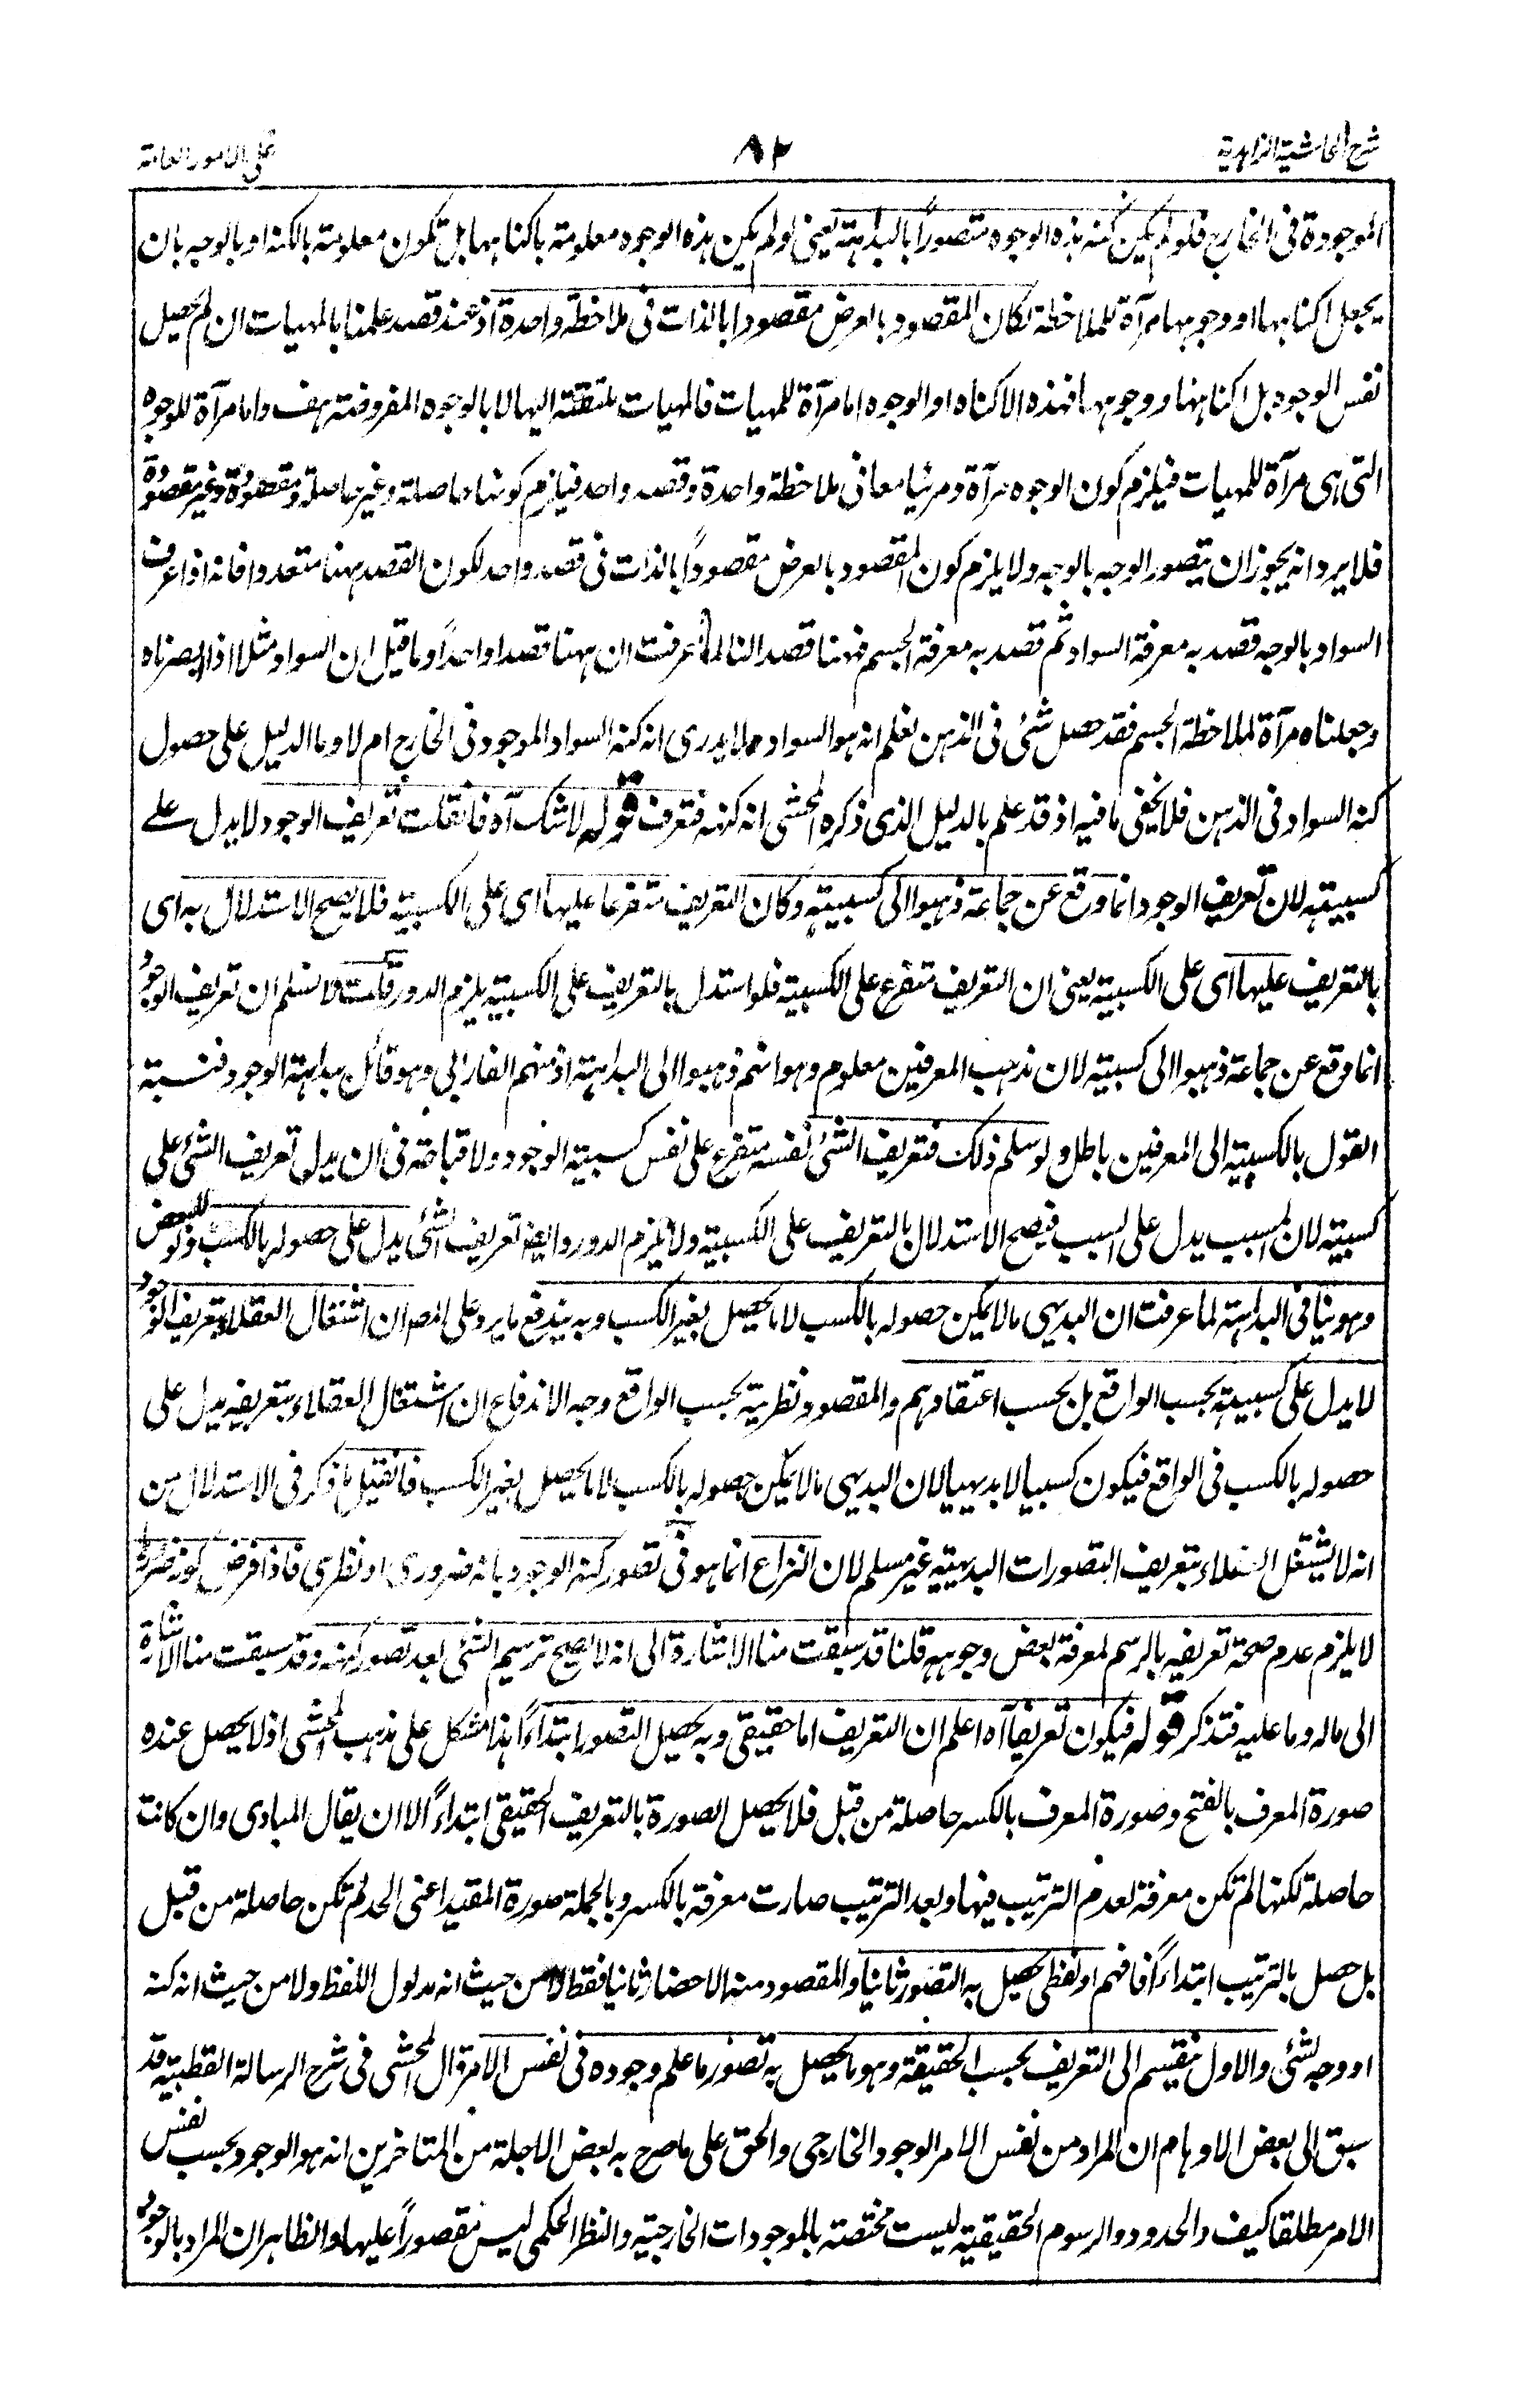 شرح الحاشية الزاهدية ٨٢ على الامور العامة
الموجودة فى الخارج فلو لم يكن كنه هذه الوجوه متصوراً بالبداهة يعنى لو لم يكن هذه الوجوه معلومة باكناهها بل تكون معلومة بالكنه او بالوجه بان
يجعل اكناهها او وجوهها مرآة للملاحظة لكان المقصود بالعرض مقصودا بالذات فى ملاحظة واحدة اذ عند قصد علمنا بالمهيات ان لم يحصل
نفس الوجوه بل اكناهها ووجوهها فهذه الاكناه او الوجوه اما مرآة للمهيات فالمهيات ملتفتة اليها لا بالوجوه المفروضة هف واما مرآة للوجوه
التى هى مرآة للمهيات فيلزم كون الوجوه مرآة ومرئيا معا فى ملاحظة واحدة وقصد واحد فيلزم كونها حاصلة وغير حاصلة ومقصودة وغير مقصودة
فلا يرد انه يجوز ان يتصور الوجه بالوجه ولا يلزم كون المقصود بالعرض مقصوداً بالذات فى قصد واحد لكون القصد ههنا متعددا فانه اذا عرف
السواد بالوجه قصد به معرفة السواد ثم قصد به معرفة الجسم فههنا قصدان لما عرفت ان ههنا قصدا واحداً وما قيل ان السواد مثلا اذا ابصرناه
وجعلناه مرآة لملاحظة الجسم فقد حصل شئ فى الذهن نعلم انه هو السواد ولا يدرى انه كنه السواد الموجود فى الخارج ام لا وما الدليل على حصول
كنه السواد فى الذهن فلا يخفى ما فيه اذ قد علم بالدليل الذى ذكره المحشى انه كنهه فتعرف قوله لا شك آه فان قلت تعريف الوجود لا يدل على
كسبيته لان تعريف الوجود انما وقع عن جماعة ذهبوا الى كسبيته وكان التعريف متفرعا عليها اى على الكسبية فلا يصح الاستدلال به اى
بالتعريف عليها اى على الكسبية يعنى ان التعريف متفرع على الكسبية فلو استدل بالتعريف على الكسبية يلزم الدور قلت لا نسلم ان تعريف الوجود
انما وقع عن جماعة ذهبوا الى كسبيته لان مذهب المعرفين معلوم وهو انهم ذهبوا الى البداهة اذ منهم الفارابى وهو قائل ببداهة الوجود فنسبة
القول بالكسبية الى المعرفين باطل ولو سلم ذلك فتعريف الشئ نفسه متفرع على نفس كسبية الوجود ولا قباحة فى ان يدل تعريف الشئ على
كسبيته لان المسبب يدل على السبب فيصح الاستدلال بالتعريف على الكسبية ولا يلزم الدور وايضا تعريف الشئ يدل على حصوله بالكسب ولو للبعض
وهو ينافى البداهة لما عرفت ان البديهى ما لا يمكن حصوله بالكسب لا ما يحصل بغير الكسب وبه يندفع ما يرد على المص ان اشتغال العقلاء بتعريف الوجود
لا يدل على كسبيته بحسب الواقع بل بحسب اعتقادهم والمقصود نظريته بحسب الواقع وجه الاندفاع ان اشتغال العقلاء بتعريفه يدل على
حصوله بالكسب فى الواقع فيكون كسبيا لا بديهيا لان البديهى ما لا يمكن حصوله بالكسب لا ما يحصل بغير الكسب فان قيل ما ذكر فى الاستدلال من
انه لا يشتغل العقلاء بتعريف التصورات البديهية غير مسلم لان النزاع انما هو فى تصور كنه الوجود بانه ضرورى او نظرى فاذا فرض كونه ضروريا
لا يلزم عدم صحة تعريفه بالرسم لمعرفة بعض وجوهه قلنا قد سبقت منا الاشارة الى انه لا يصح ترسيم الشئ بعد تصور كنهه وقد سبقت منا الاشارة
الى ماله وما عليه فتذكر قوله فيكون تعريفا آه اعلم ان التعريف اما حقيقى وبه يحصل التصور ابتداءً هذا مشكل على مذهب المحشى اذ لا يحصل عنده
صورة المعرف بالفتح وصورة المعرف بالكسر حاصلة من قبل فلا يحصل الصورة بالتعريف الحقيقى ابتداءً الا ان يقال المبادى وان كانت
حاصلة لكنها لم تكن معرفة لعدم الترتيب فيها وبعد الترتيب صارت معرفة بالكسر وبالجملة صورة المقيد اعنى الحد لم تكن حاصلة من قبل
بل حصل بالترتيب ابتداءً فافهم او لفظى يحصل به التصور ثانيا والمقصود منه الاحضار ثانيا فقط لا من حيث انه مدلول اللفظ ولا من حيث انه كنه
او وجه لشئ والاول ينقسم الى التعريف بحسب الحقيقة وهو ما يحصل به تصور ما علم وجوده فى نفس الامر قال المحشى فى شرح الرسالة القطبية قد
سبق الى بعض الاوهام ان المراد من نفس الامر الوجود الخارجى والحق على ما صرح به بعض الاجلة من المتاخرين انه هو الوجود بحسب نفس
الامر مطلقا كيف والحدود والرسوم الحقيقية ليست مختصة بالموجودات الخارجية والنظر الحكمى ليس مقصوراً عليها والظاهر ان المراد بالوجود